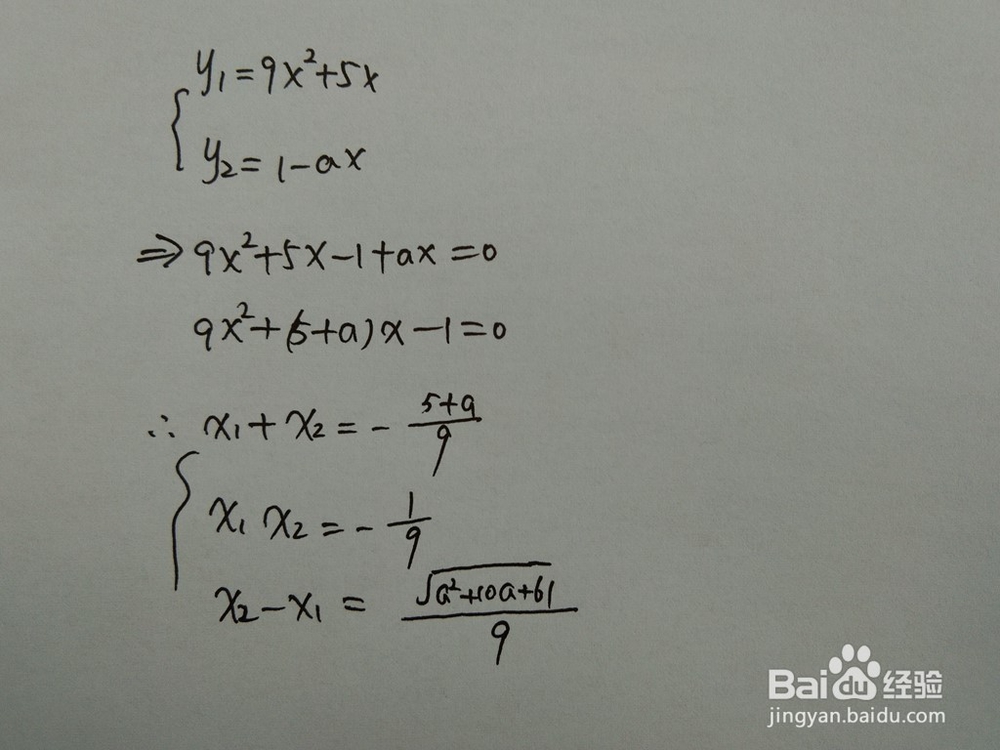 y₁=9x²+5x
y₂=1-ax
⇒9x²+5x-1+ax=0
9x²+(5+a)x-1=0
∴ x₁+x₂=-\frac{5+a}{9}
x₁x₂=-\frac{1}{9}
x₂-x₁=\frac{\sqrt{a²+10a+61}}{9}
Baidu经验
jingyan.baidu.com